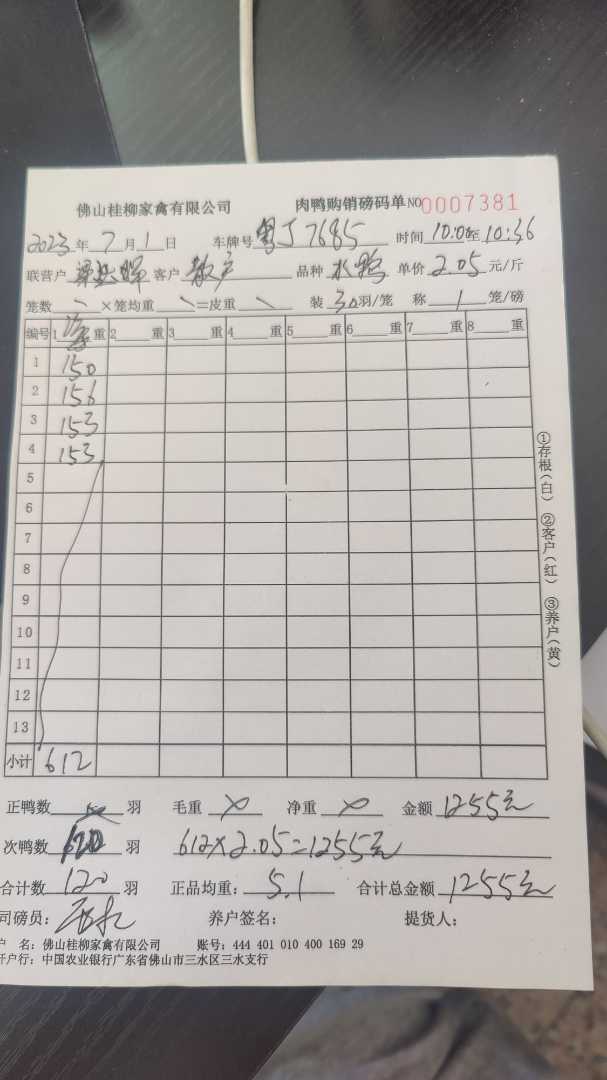 佛山桂柳家禽有限公司 肉鸭购销磅码单 NO 0007381
2023年7月1日 车牌号 粤J7685 时间 10:0 至 10:36
联营户 客户 散户 品种 水鸭 单价 2.05 元/斤
笼数 ×笼均重 =皮重 装 30 羽/笼 称 1 笼/磅
编号 1 重 2 重 3 重 4 重 5 重 6 重 7 重 8 重
1 150
2 156
3 153
4 153
5
6
7
8
9
10
11
12
13
小计 612
①存根(白) ②客户(红) ③养户(黄)
正鸭数 羽 毛重 净重 金额 1255元
次鸭数 120 羽 612×2.05=1255元
合计数 120 羽 正品均重: 5.1 合计总金额 1255元
司磅员: 养户签名: 提货人:
户 名: 佛山桂柳家禽有限公司 账号: 444 401 010 400 169 29
开户行: 中国农业银行广东省佛山市三水区三水支行